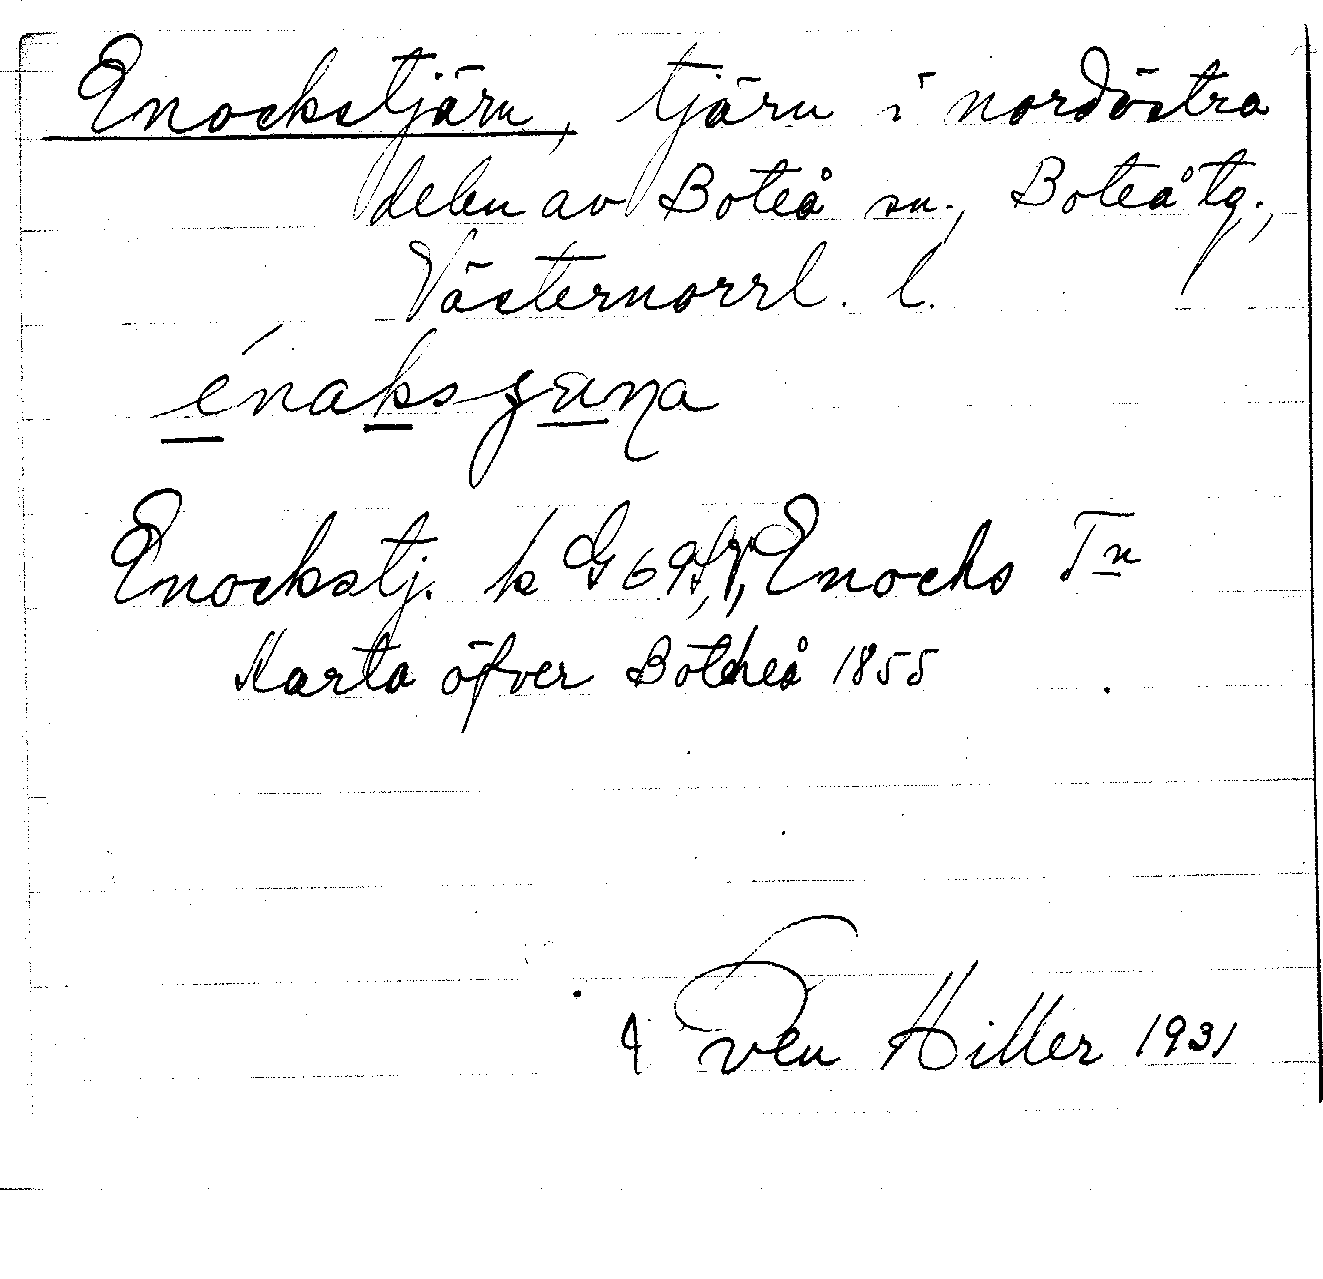 Enockstjärn, tjärn i nordöstra
delen av Boteå sn., Boteå tg.,
Västernorrl. l.
Enockstj. k G 69, Enochs Tn
Karta öfver Bötheå 1855
Sven Hiller 1931